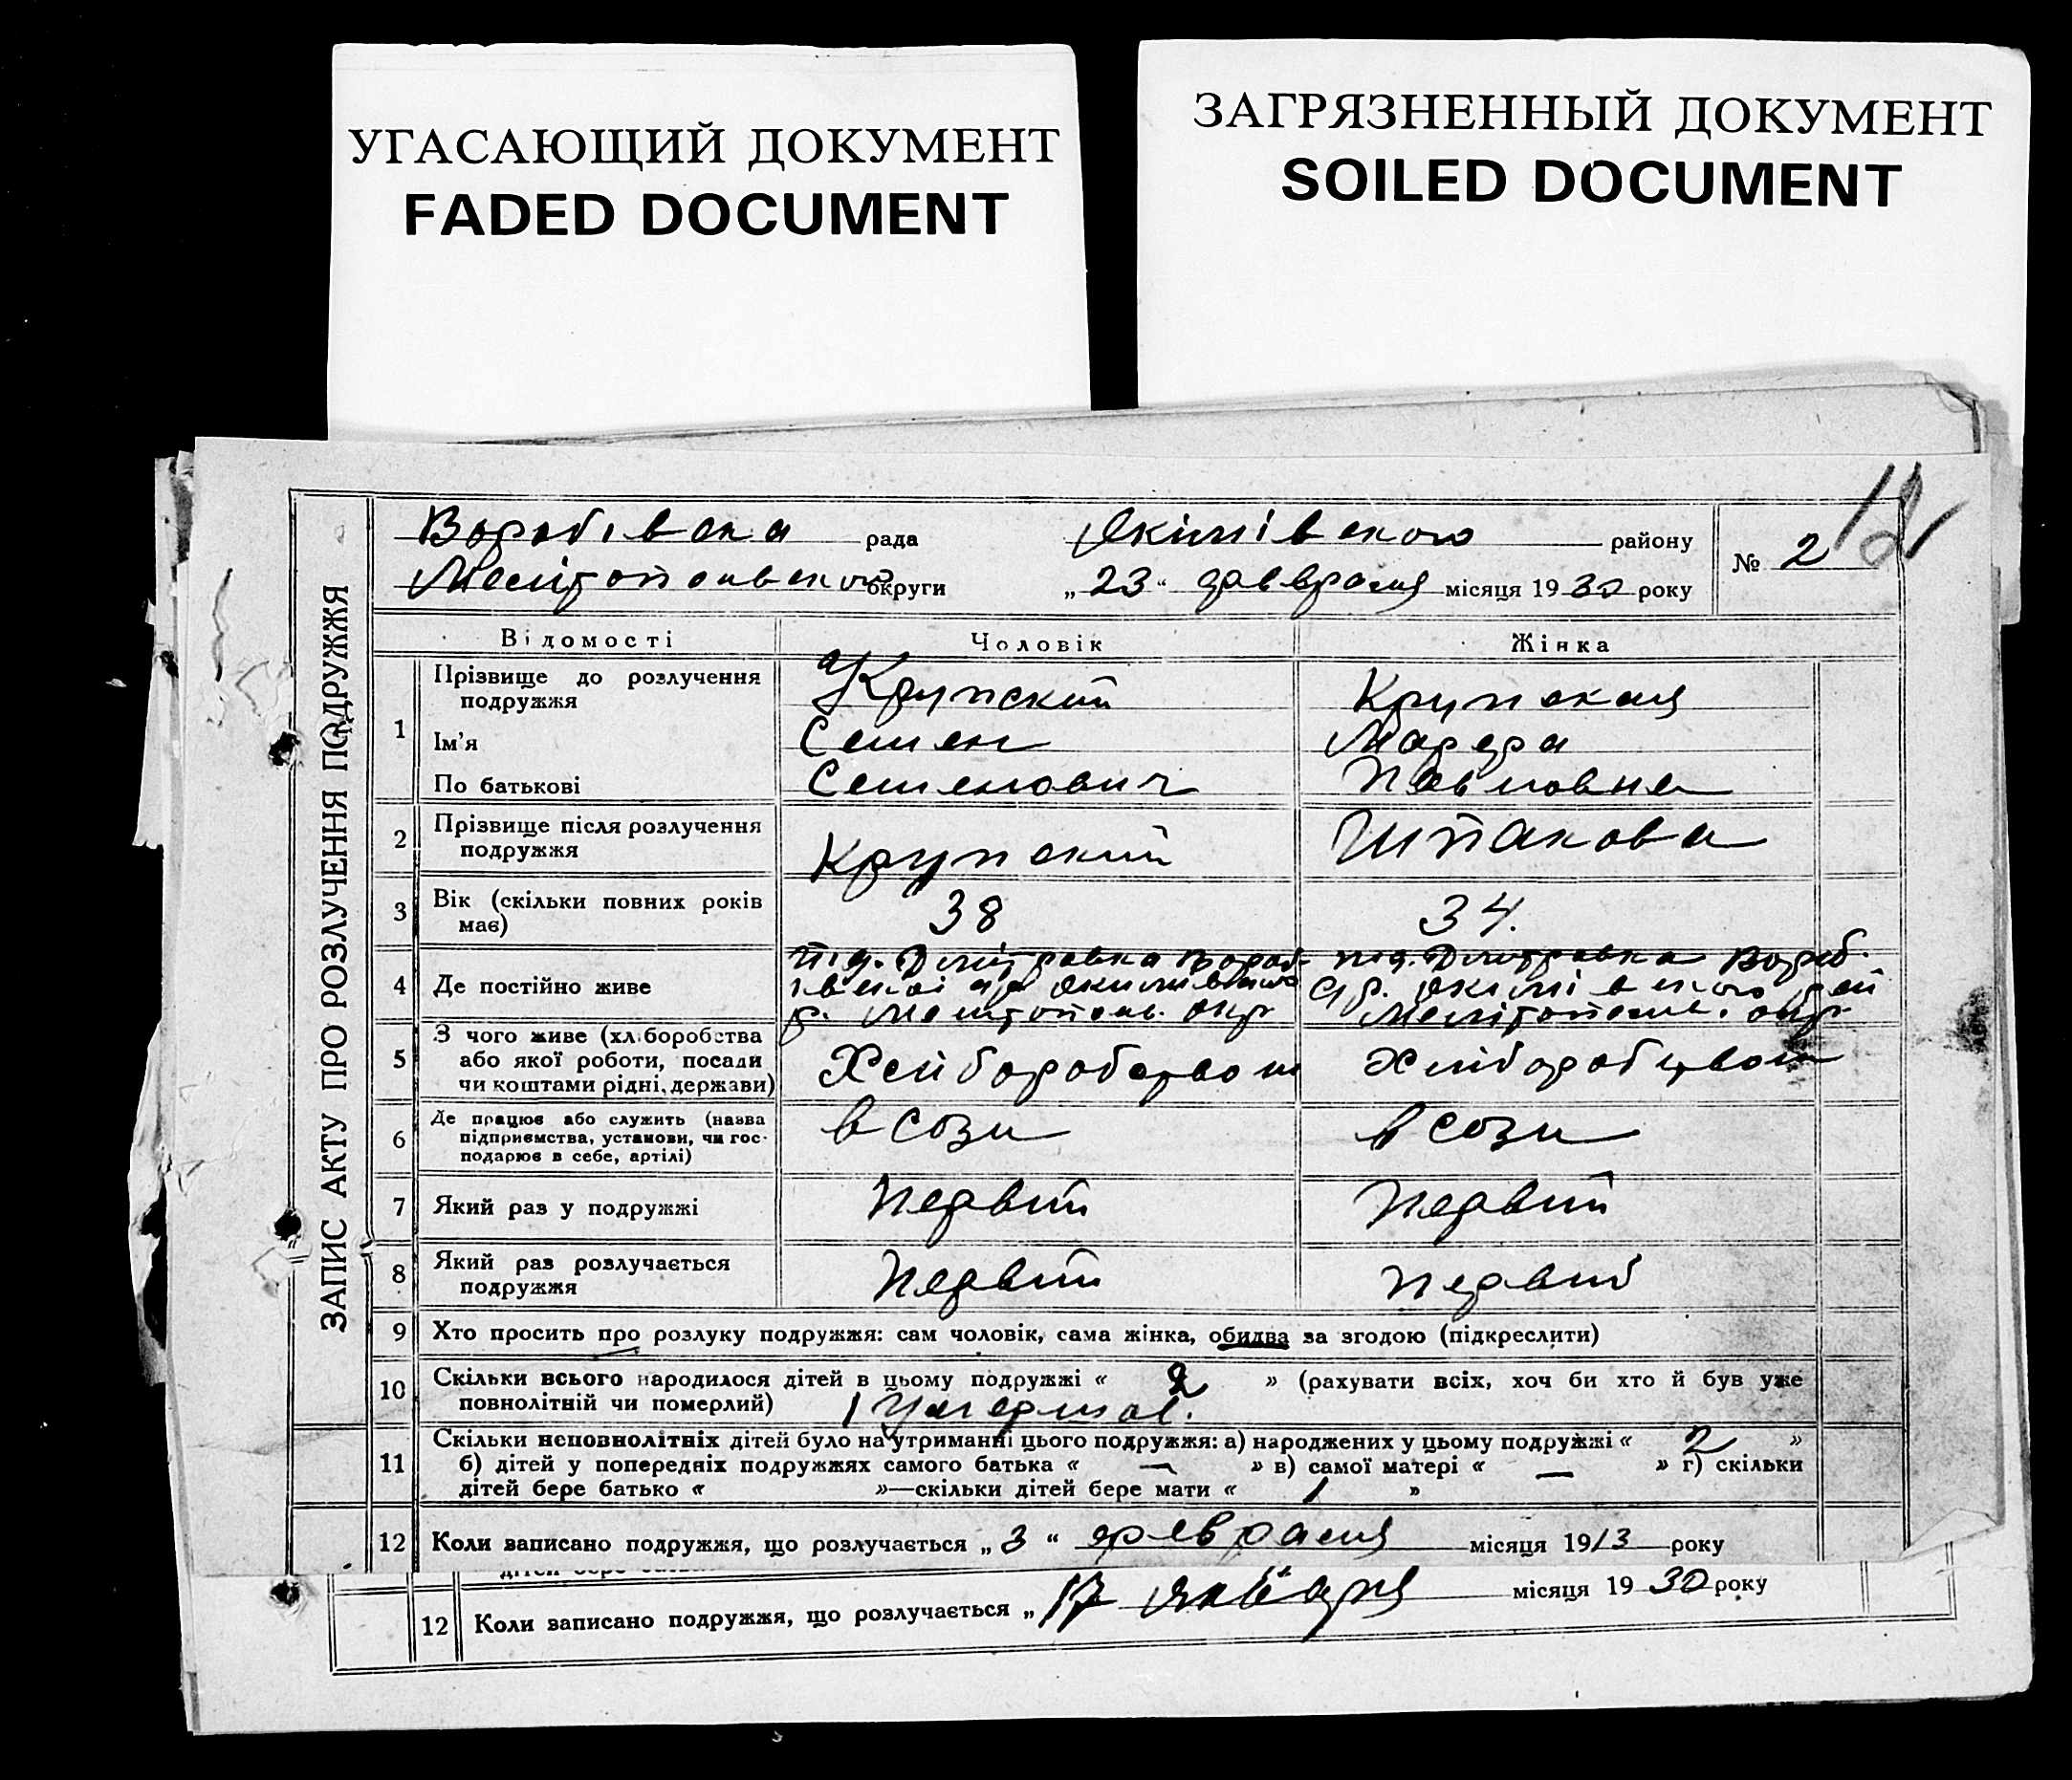 УГАСАЮЩИЙ ДОКУМЕНТ
FADED DOCUMENT
ЗАГРЯЗНЕННЫЙ ДОКУМЕНТ
SOILED DOCUMENT
ЗАПИС АКТУ ПРО РОЗЛУЧЕННЯ ПОДРУЖЖЯ
Воробівска рада Якімівского району
Мелітопольского округи „23“ февраля місяця 1930 року
№ 2
12
Відомості Чоловік Жінка
1 Прізвище до розлучення подружжя Крупский Крупская
Ім'я Семен
По батькові Семенович Павловна
2 Прізвище після розлучення подружжя Крупский Шпакова
3 Вік (скільки повних років має) 38 34.
4 Де постійно живе
5 З чого живе (хліборобства
або якої роботи, посади
чи коштами рідні, держави) Хлиборобством Хлиборобством
6 Де працює або служить (назва
підприємства, установи, чи гос-
подарює в себе, артілі) в сози в сози
7 Який раз у подружжі Первий Первий
8 Який раз розлучається
подружжя Первий Первий
9 Хто просить про розлуку подружжя: сам чоловік, сама жінка, обидва за згодою (підкреслити)
10 Скільки всього народилося дітей в цьому подружжі « 2 » (рахувати всіх, хоч би хто й був уже
повнолітній чи померлий) 1
11 Скільки неповнолітніх дітей було на утриманні цього подружжя: а) народжених у цьому подружжі « 2 »
б) дітей у попередніх подружжях самого батька « — » в) самої матері « — » г) скільки
дітей бере батько « »—скільки дітей бере мати « 1 »
12 Коли записано подружжя, що розлучається „3“ февраля місяця 1913 року
12 Коли записано подружжя, що розлучається „17 января місяця 1930 року